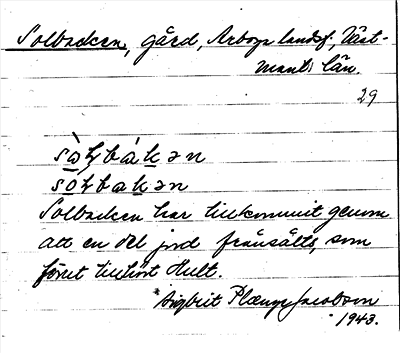 Solbacken, gård, Arboga landsf., Väst-
manl. län.
29
sòɫbákən
sólbakən
Solbacken har tillkommit genom
att en del jord frånsålts, som
förut tillhört Hult.
Sigbrit Plænge Jacobson
1943.